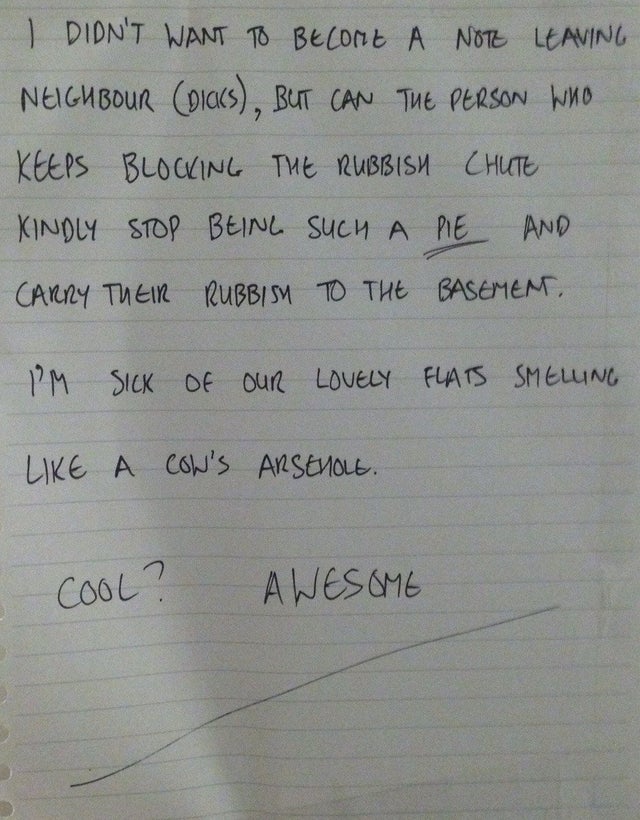 I DIDN'T WANT TO BECOME A NOTE LEAVING
NEIGHBOUR (DICKS), BUT CAN THE PERSON WHO
KEEPS BLOCKING THE RUBBISH CHUTE
KINDLY STOP BEING SUCH A PIE AND
CARRY THEIR RUBBISH TO THE BASEMENT.
I'M SICK OF OUR LOVELY FLATS SMELLING
LIKE A COW'S ARSEHOLE.
COOL? AWESOME